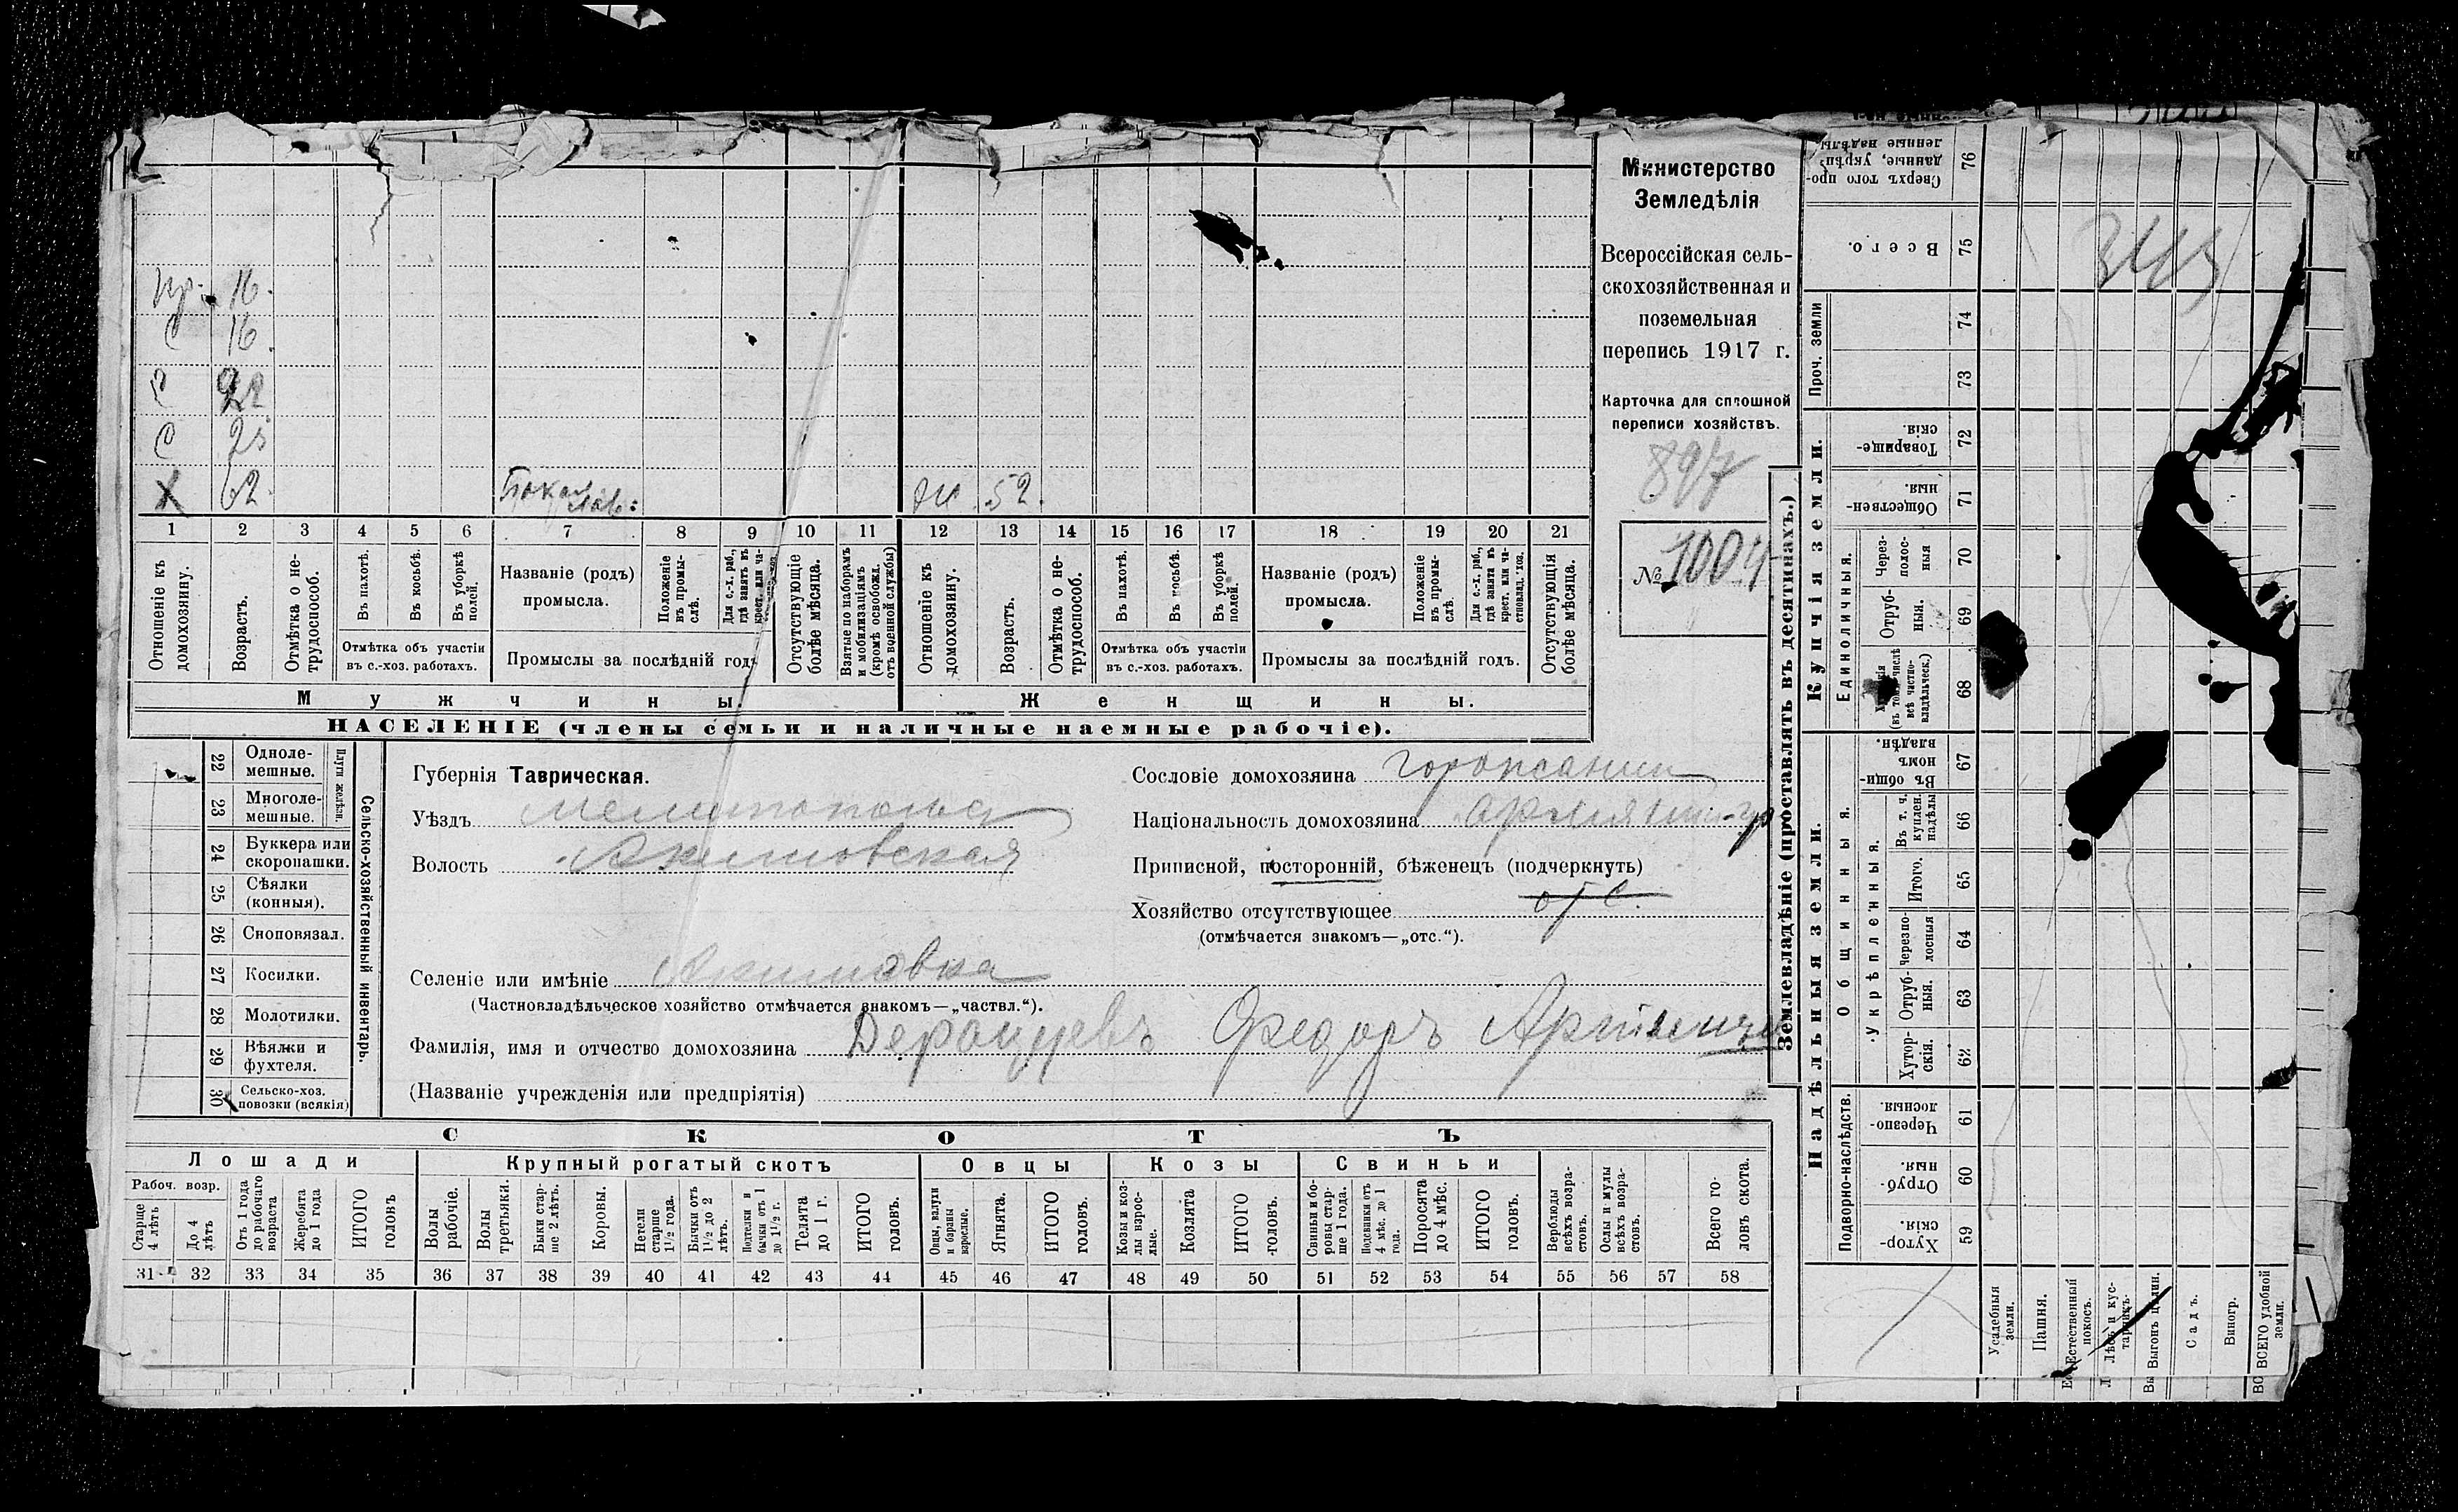 Министерство
Земледѣлія
Всероссійская сель-
скохозяйственная и
поземельная
перепись 1917 г.
Карточка для сплошной
переписи хозяйствъ.
897
№ 1004
пр. 16.
С 16.
С
С 25
Х 62. Ж 52.
1 2 3 4 5 6 7 8 9 10 11 12 13 14 15 16 17 18 19 20 21
Отношеніе къ домохозяину.
Возрастъ.
Отмѣтка о не-трудоспособ.
Въ пахотѣ.
Въ косьбѣ.
Въ уборкѣ полей.
Отмѣтка объ участіи
въ с.-хоз. работахъ.
Названіе (родъ)
промысла.
Положеніе въ промы-слѣ.
Для с.-х. раб., гдѣ занятъ въ крест. или ча-
Промыслы за послѣдній годъ
Отсутствующіе болѣе мѣсяца.
Взятые по наборамъ и мобилизаціямъ (кромѣ освобожд. отъ военной службы)
Отношеніе къ домохозяину.
Возрастъ.
Отмѣтка о не-трудоспособ.
Въ пахотѣ.
Въ косьбѣ.
Въ уборкѣ полей.
Отмѣтка объ участіи
въ с.-хоз. работахъ.
Названіе (родъ)
промысла.
Положеніе въ промы-слѣ.
Для с.-х. раб., гдѣ занята въ крест. или ча-стновлад. хоз.
Промыслы за послѣдній годъ.
Отсутствующія болѣе мѣсяца.
Мужчины.
Женщины.
НАСЕЛЕНІЕ (члены семьи и наличные наемные рабочіе).
22 Одноле-мешные.
23 Многоле-мешные.
Плуги желѣзн.
24 Буккера или скоропашки.
25 Сѣялки (конныя).
26 Сноповязал.
27 Косилки.
28 Молотилки.
29 Вѣялки и фухтеля.
30 Сельско-хоз. повозки (всякія)
Сельско-хозяйственный инвентарь.
Губернія Таврическая.
Уѣздъ Мелитопольск
Волость Акимовская
Селеніе или имѣніе Акимовка
(Частновладѣльческое хозяйство отмѣчается знакомъ—„частвл.“).
Фамилія, имя и отчество домохозяина Федоръ
(Названіе учрежденія или предпріятія)
Сословіе домохозяина горожанин
Національность домохозяина
Приписной, посторонній, бѣженецъ (подчеркнуть)
Хозяйство отсутствующее отс.
(отмѣчается знакомъ—„отс.“).
СКОТЪ
Лошади
Крупный рогатый скотъ
Овцы
Козы
Свиньи
Рабоч. возр.
Старше 4 лѣтъ
До 4 лѣтъ
Отъ 1 года до рабочаго возраста
Жеребята до 1 года
ИТОГО головъ
Волы рабочіе.
Волы третьяки.
Быки стар-ше 2 лѣтъ.
Коровы.
Нетели старше 1½ года.
Бычки отъ 1½ до 2 лѣтъ.
Подтелки и бычки отъ 1 до 1½ г.
Телята до 1 г.
ИТОГО головъ.
Овцы, валухи и бараны взрослые.
Ягнята.
ИТОГО головъ.
Козы и коз-лы взрос-лые.
Козлята
ИТОГО головъ.
Свиньи и бо-ровы стар-ше 1 года.
Подсвинки отъ 4 мѣс. до 1 года.
Поросята до 4 мѣс.
ИТОГО головъ.
Верблюды всѣхъ возра-стовъ.
Ослы и мулы всѣхъ возра-стовъ.
Всего го-ловъ скота.
31 32 33 34 35 36 37 38 39 40 41 42 43 44 45 46 47 48 49 50 51 52 53 54 55 56 57 58
Землевладѣніе (проставлять въ десятинахъ.)
Купчія земли.
Надѣльныя земли.
Сверхъ того про-данные, укрѣп-ленные надѣлы
76
Всего.
75
Проч. земли
74
73
Товарище-скія.
72
Обществен-ныя.
71
Единоличныя.
Через-полос-ныя
70
Отруб-ныя.
69
(въ томъ числѣ всѣ частно-владѣльческ.)
68
Общинныя.
Въ общи-номъ владѣн.
67
Укрѣпленныя.
Въ т. ч. куплен. надѣлы
66
Итого.
65
Черезпо-лосныя
64
Отруб-ныя.
63
Хутор-скія.
62
Подворно-наслѣдств.
Черезпо-лосныя
61
Отруб-ныя.
60
Хутор-скія.
59
Усадебныя земли.
Пашня.
Естественный покосъ.
Лѣсъ и кус-тарникъ.
Выгонъ цѣлин.
Садъ.
Виногр.
ВСЕГО удобной земли.